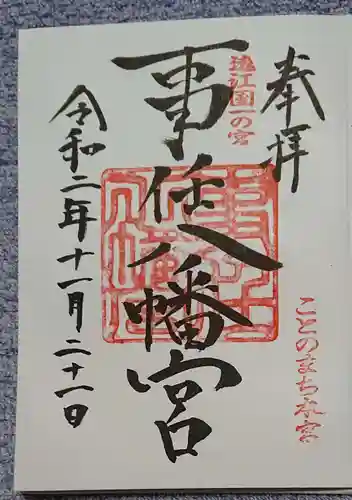 奉拝
遠江国一の宮
事任八幡宮
ことのまち八幡宮
令和二年十一月二十一日